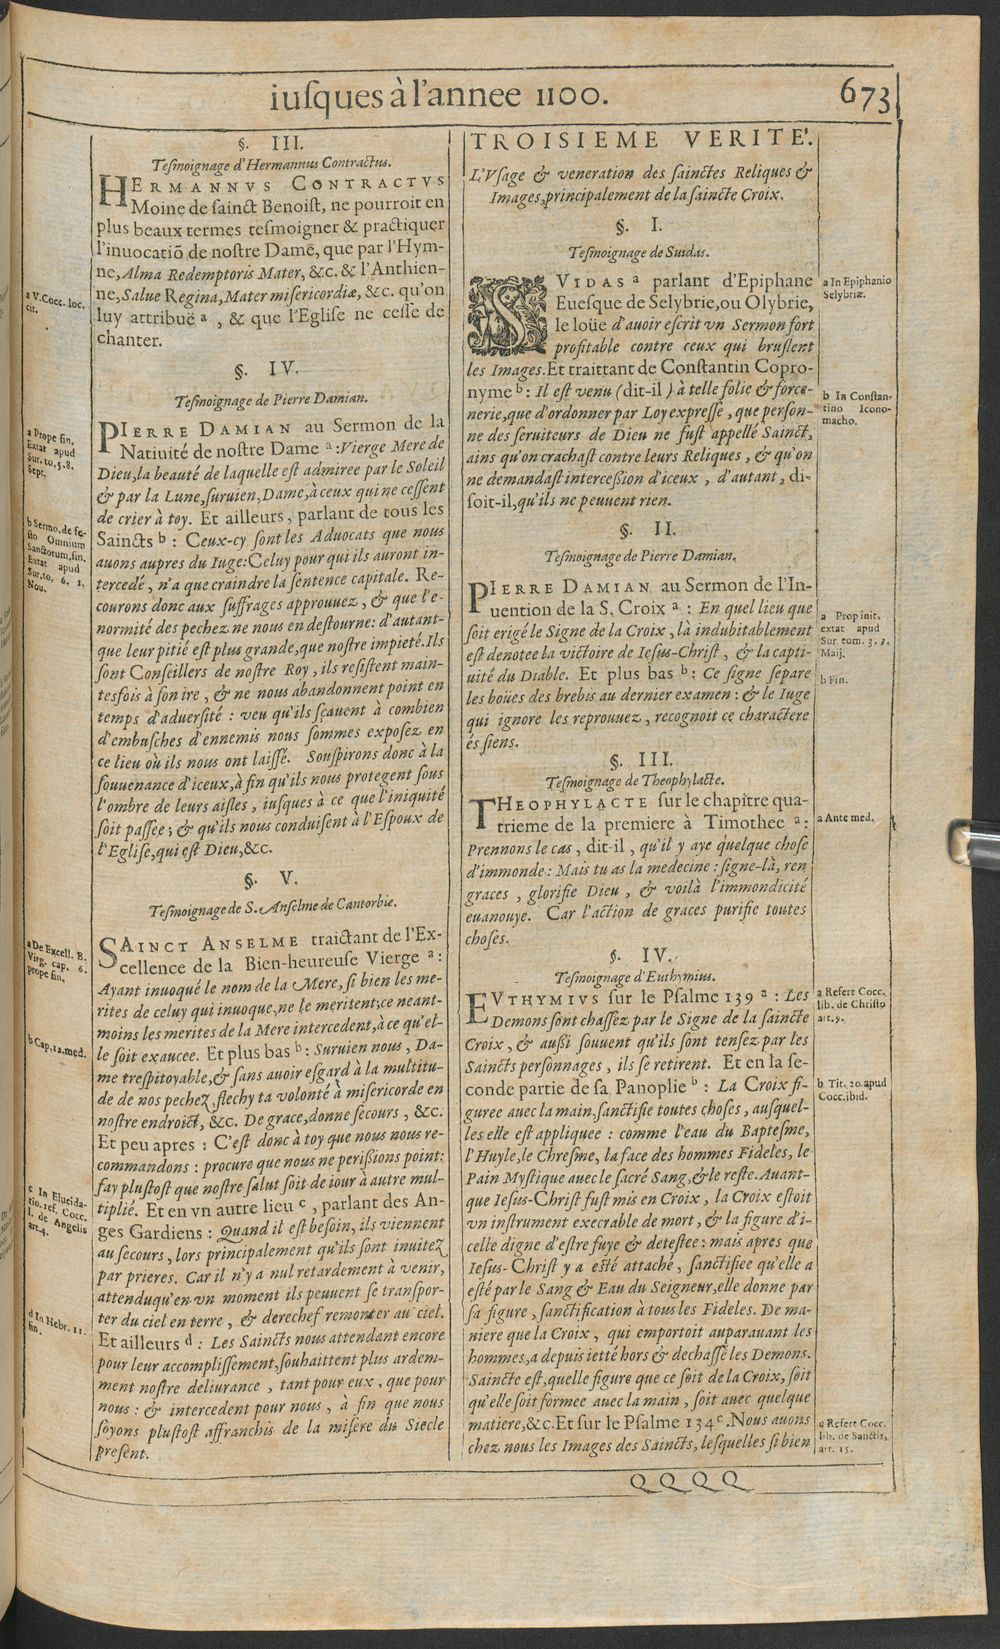 iuſques à l'annee 1100.
673
§. III.
Teſmoignage d'Hermannus Contractus.
HERMANNVS CONTRACTVS
Moine de ſainct Benoiſt, ne pourroit en
plus beaux termes teſmoigner & practiquer
l'inuocatiõ de noſtre Dame, que par l'Hym-
ne, Alma Redemptoris Mater, &c. & l'Anthien-
ne, Salue Regina, Mater miſericordiæ, &c. qu'on
luy attribuë a , & que l'Egliſe ne ceſſe de
chanter.
a V. Cocc. loc.
cit.
§. IV.
Teſmoignage de Pierre Damian.
PIERRE DAMIAN au Sermon de la
Natiuité de noſtre Dame a : Vierge Mere de
Dieu, la beauté de laquelle eſt admiree par le Soleil
& par la Lune, ſuruien, Dame, à ceux qui ne ceſſent
de crier à toy. Et ailleurs, parlant de tous les
Saincts b : Ceux-cy ſont les Aduocats que nous
auons aupres du Iuge: Celuy pour qui ils auront in-
tercedé, n'a que craindre la ſentence capitale. Re-
courons donc aux ſuffrages approuuez, & que l'e-
normité des pechez ne nous en deſtourne: d'autant-
que leur pitié eſt plus grande, que noſtre impieté. Ils
ſont Conſeillers de noſtre Roy, ils reſiſtent main-
tesfois à ſon ire, & ne nous abandonnent point en
temps d'aduerſité : veu qu'ils ſçauent à combien
d'embuſches d'ennemis nous ſommes expoſez en
ce lieu où ils nous ont laiſſé. Souſpirons donc à la
ſouuenance d'iceux, à fin qu'ils nous protegent ſous
l'ombre de leurs aiſles, iuſques à ce que l'iniquité
ſoit paſſee; & qu'ils nous conduiſent à l'Eſpoux de
l'Egliſe, qui eſt Dieu, &c.
a Prope fin.
Extat apud
Sur. to. 5. 8.
Sept.
b Sermo. de fe-
ſto Omnium
Sanctorum, fin.
Extat apud
Sur. to. 6. 1.
Nou.
§. V.
Teſmoignage de S. Anſelme de Cantorbie.
SAINCT ANSELME traictant de l'Ex-
cellence de la Bien-heureuſe Vierge a :
Ayant inuoqué le nom de la Mere, ſi bien les me-
rites de celuy qui inuoque, ne le meritent; ce neant-
moins les merites de la Mere intercedent, à ce qu'el-
le ſoit exaucee. Et plus bas b : Suruien nous, Da-
me treſpitoyable, & ſans auoir eſgard à la multitu-
de de nos pechez, flechy ta volonté à miſericorde en
noſtre endroict, &c. De grace, donne ſecours, &c.
Et peu apres : C'eſt donc à toy que nous nous re-
commandons : procure que nous ne periſſions point:
fay pluſtoſt que noſtre ſalut ſoit de iour à autre mul-
tiplié. Et en vn autre lieu c , parlant des An-
ges Gardiens : Quand il eſt beſoin, ils viennent
au ſecours, lors principalement qu'ils ſont inuitez
par prieres. Car il n'y a nul retardement à venir,
attendu qu'en vn moment ils peuuent ſe tranſpor-
ter du ciel en terre, & derechef remonter au ciel.
Et ailleurs d : Les Saincts nous attendant encore
pour leur accompliſſement, ſouhaittent plus ardem-
ment noſtre deliurance, tant pour eux, que pour
nous : & intercedent pour nous, à fin que nous
ſoyons pluſtoſt affranchis de la miſere du Siecle
preſent.
a De Excell. B.
Virg. cap. 6.
prope fin.
b Cap. 12. med.
c In Elucida-
rio. ref. Cocc.
l. de Angelis
art. 4.
d In Hebr. 11.
fin.
TROISIEME VERITE'.
L'Vſage & veneration des ſainctes Reliques &
Images, principalement de la ſaincte Croix.
§. I.
Teſmoignage de Suidas.
SVIDAS a parlant d'Epiphane
Eueſque de Selybrie, ou Olybrie,
le loüe d'auoir eſcrit vn Sermon fort
profitable contre ceux qui bruſlent
les Images. Et traittant de Conſtantin Copro-
nyme b : Il eſt venu (dit-il) à telle folie & force-
nerie, que d'ordonner par Loy expreſſe, que perſon-
ne des ſeruiteurs de Dieu ne fuſt appellé Sainct,
ains qu'on crachaſt contre leurs Reliques, & qu'on
ne demandaſt interceſſion d'iceux, d'autant, di-
ſoit-il, qu'ils ne peuuent rien.
a In Epiphanio
Selybriæ.
b In Conſtan-
tino Icono-
macho.
§. II.
Teſmoignage de Pierre Damian.
PIERRE DAMIAN au Sermon de l'In-
uention de la S. Croix a : En quel lieu que
ſoit erigé le Signe de la Croix, là indubitablement
eſt denotee la victoire de Ieſus-Chriſt, & la capti-
uité du Diable. Et plus bas b : Ce ſigne ſepare
les boües des brebis au dernier examen : & le Iuge
qui ignore les reprouuez, recognoit ce charactere
és ſiens.
a Prop init.
extat apud
Sur. tom. 3. 3.
Maij.
b Fin.
§. III.
Teſmoignage de Theophylacte.
THEOPHYLACTE ſur le chapitre qua-
trieme de la premiere à Timothee a :
Prennons le cas, dit-il, qu'il y aye quelque choſe
d'immonde : Mais tu as la medecine : ſigne-là, ren
graces, glorifie Dieu, & voilà l'immondicité
euanouye. Car l'action de graces purifie toutes
choſes.
a Ante med.
§. IV.
Teſmoignage d'Euthymius.
EVTHYMIVS ſur le Pſalme 139 a : Les
Demons ſont chaſſez par le Signe de la ſaincte
Croix, & auſſi ſouuent qu'ils ſont tenſez par les
Saincts perſonnages, ils ſe retirent. Et en la ſe-
conde partie de ſa Panoplie b : La Croix fi-
guree auec la main, ſanctifie toutes choſes, auſquel-
les elle eſt appliquee : comme l'eau du Bapteſme,
l'Huyle, le Chreſme, la face des hommes Fideles, le
Pain Myſtique auec le ſacré Sang, & le reſte. Auant-
que Ieſus-Chriſt fuſt mis en Croix, la Croix eſtoit
vn inſtrument execrable de mort, & la figure d'i-
celle digne d'eſtre fuye & deteſtee : mais apres que
Ieſus-Chriſt y a eſté attaché, ſanctifiee qu'elle a
eſté par le Sang & Eau du Seigneur, elle donne par
ſa figure, ſanctification à tous les Fideles. De ma-
niere que la Croix, qui emportoit auparauant les
hommes, a depuis ietté hors & dechaſſé les Demons.
Saincte eſt, quelle figure que ce ſoit de la Croix, ſoit
qu'elle ſoit formee auec la main, ſoit auec quelque
matiere, &c. Et ſur le Pſalme 134 c . Nous auons
chez nous les Images des Saincts, leſquelles ſi bien
a Refert Cocc.
lib. de Chriſto
art. 9.
b Tit. 20. apud
Cocc. ibid.
c Refert Cocc.
lib. de Sanctis,
art. 15.
QQQQ